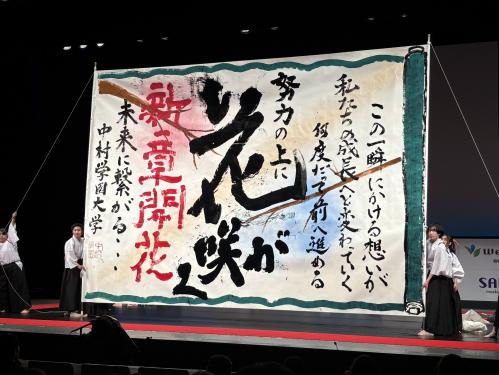 この一瞬にかける想いが
私たちの成長へと変わっていく
何度だって前へ進める
努力の上に
花が
咲く
新章開花
未来に繋がる・・・
中村学園大学
We
SA